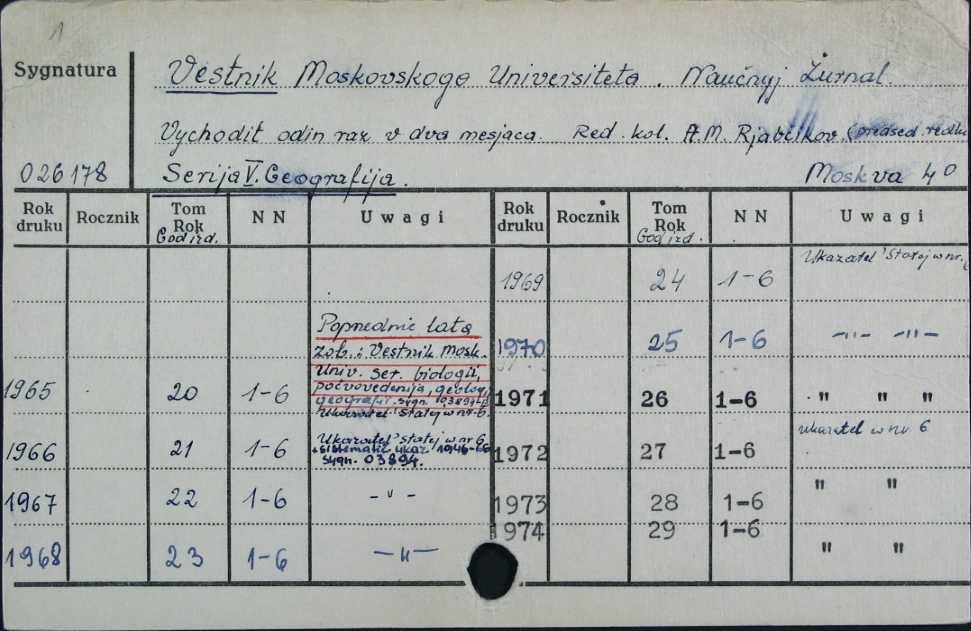 1
Sygnatura
Vestnik Moskovskogo Universiteta. Naučnyj Žurnal.
Vychodit odin raz v dva mesjaca. Red. kol. A.M. Rjabčikov (predsed. redkol
026178 Serija V. Geografija. Moskva 4°
Rok druku Rocznik Tom Rok God izd. NN Uwagi Rok druku Rocznik Tom Rok God izd. NN Uwagi
1969 24 1-6 Ukazatel' statej w nr. 6
Poprzednie lata
zob.: Vestnik Mosk. 1970 25 1-6 -"- -"-
Univ. Ser. biologii,
1965 20 1-6 počvovedenija, geolog., 1971 26 1-6 " " "
geografii. sygn.
Ukazatel' statej w nr 6.
1966 21 1-6 Ukazatel' statej w nr 6 1972 27 1-6 ukazatel w nr 6
+ sistematič. ukaz. 1946-66
sygn. 03894.
1967 22 1-6 -"- 1973 28 1-6 " "
1974 29 1-6
1968 23 1-6 -"- " "